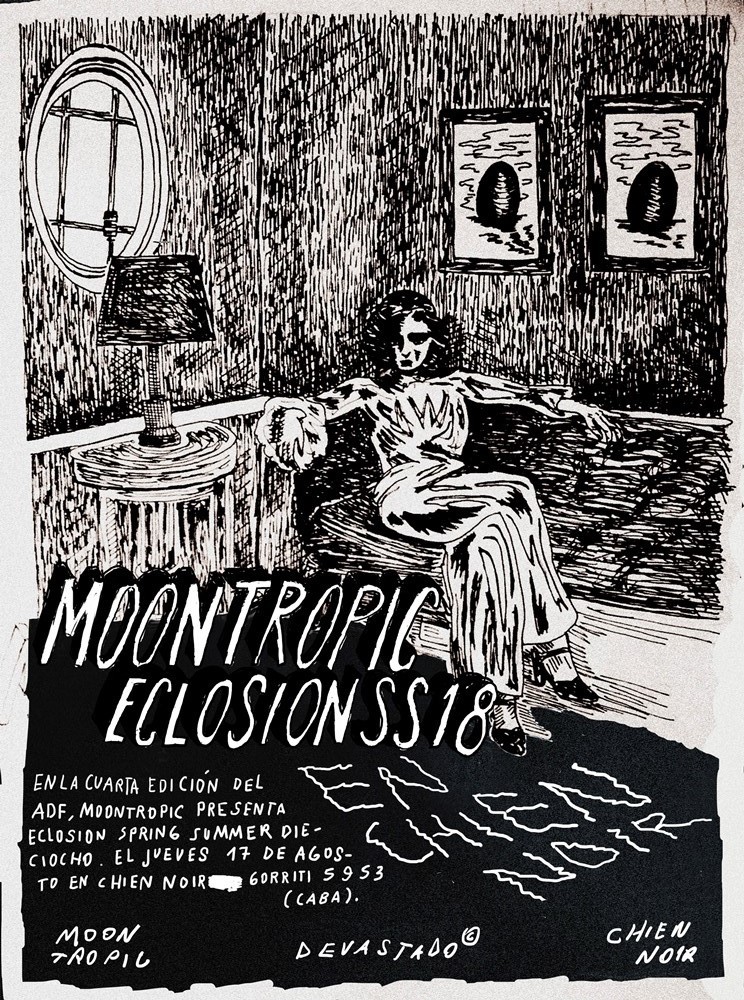 MOONTROPIC
ECLOSION SS18
EN LA CUARTA EDICIÓN DEL
ADF, MOONTROPIC PRESENTA
ECLOSION SPRING SUMMER DIE-
CIOCHO. EL JUEVES 17 DE AGOS-
TO EN CHIEN NOIR GORRITI 5953
(CABA).
MOON
TROPIC
DEVASTADO©
CHIEN
NOIR